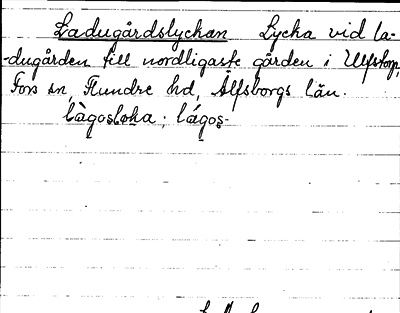 Ladugårdslyckan Lycka vid la-
-dugården till nordligaste gården i Ulfstorp,
Fors sn, Flundre hd, Älfsborgs län.
làgosloka; lágos-